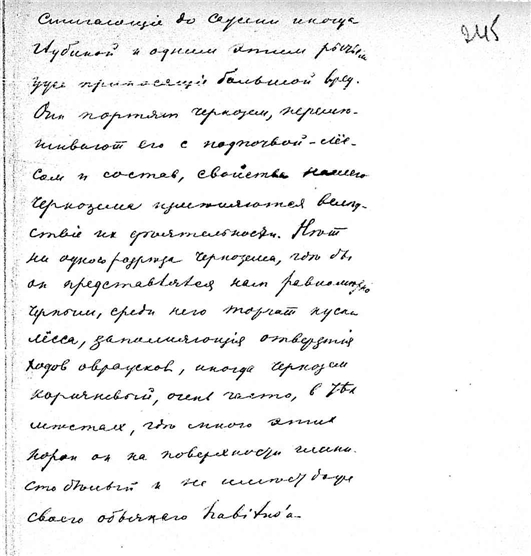 245
до сажени иногда
глубиной и одним этим рытьем
уже приносящiе большой вред.
Они портят чернозем, переме-
шивают его с подпочвой-лёс-
сом и состав, свойства нашего
чернозема изменяются вслед-
ствiе их деятельности. Нет
ни одного разреза чернозема, где бы
он представлялся нам равномерно
черным, среди него торчат куски
лёсса, заполняющiя отверзтiя
ходов, иногда чернозем
коричневый, очень часто, в тѣх
местах, где много этих
норок он на поверхности глини-
сто белый и не имеет более
своего обычного habitus'a.